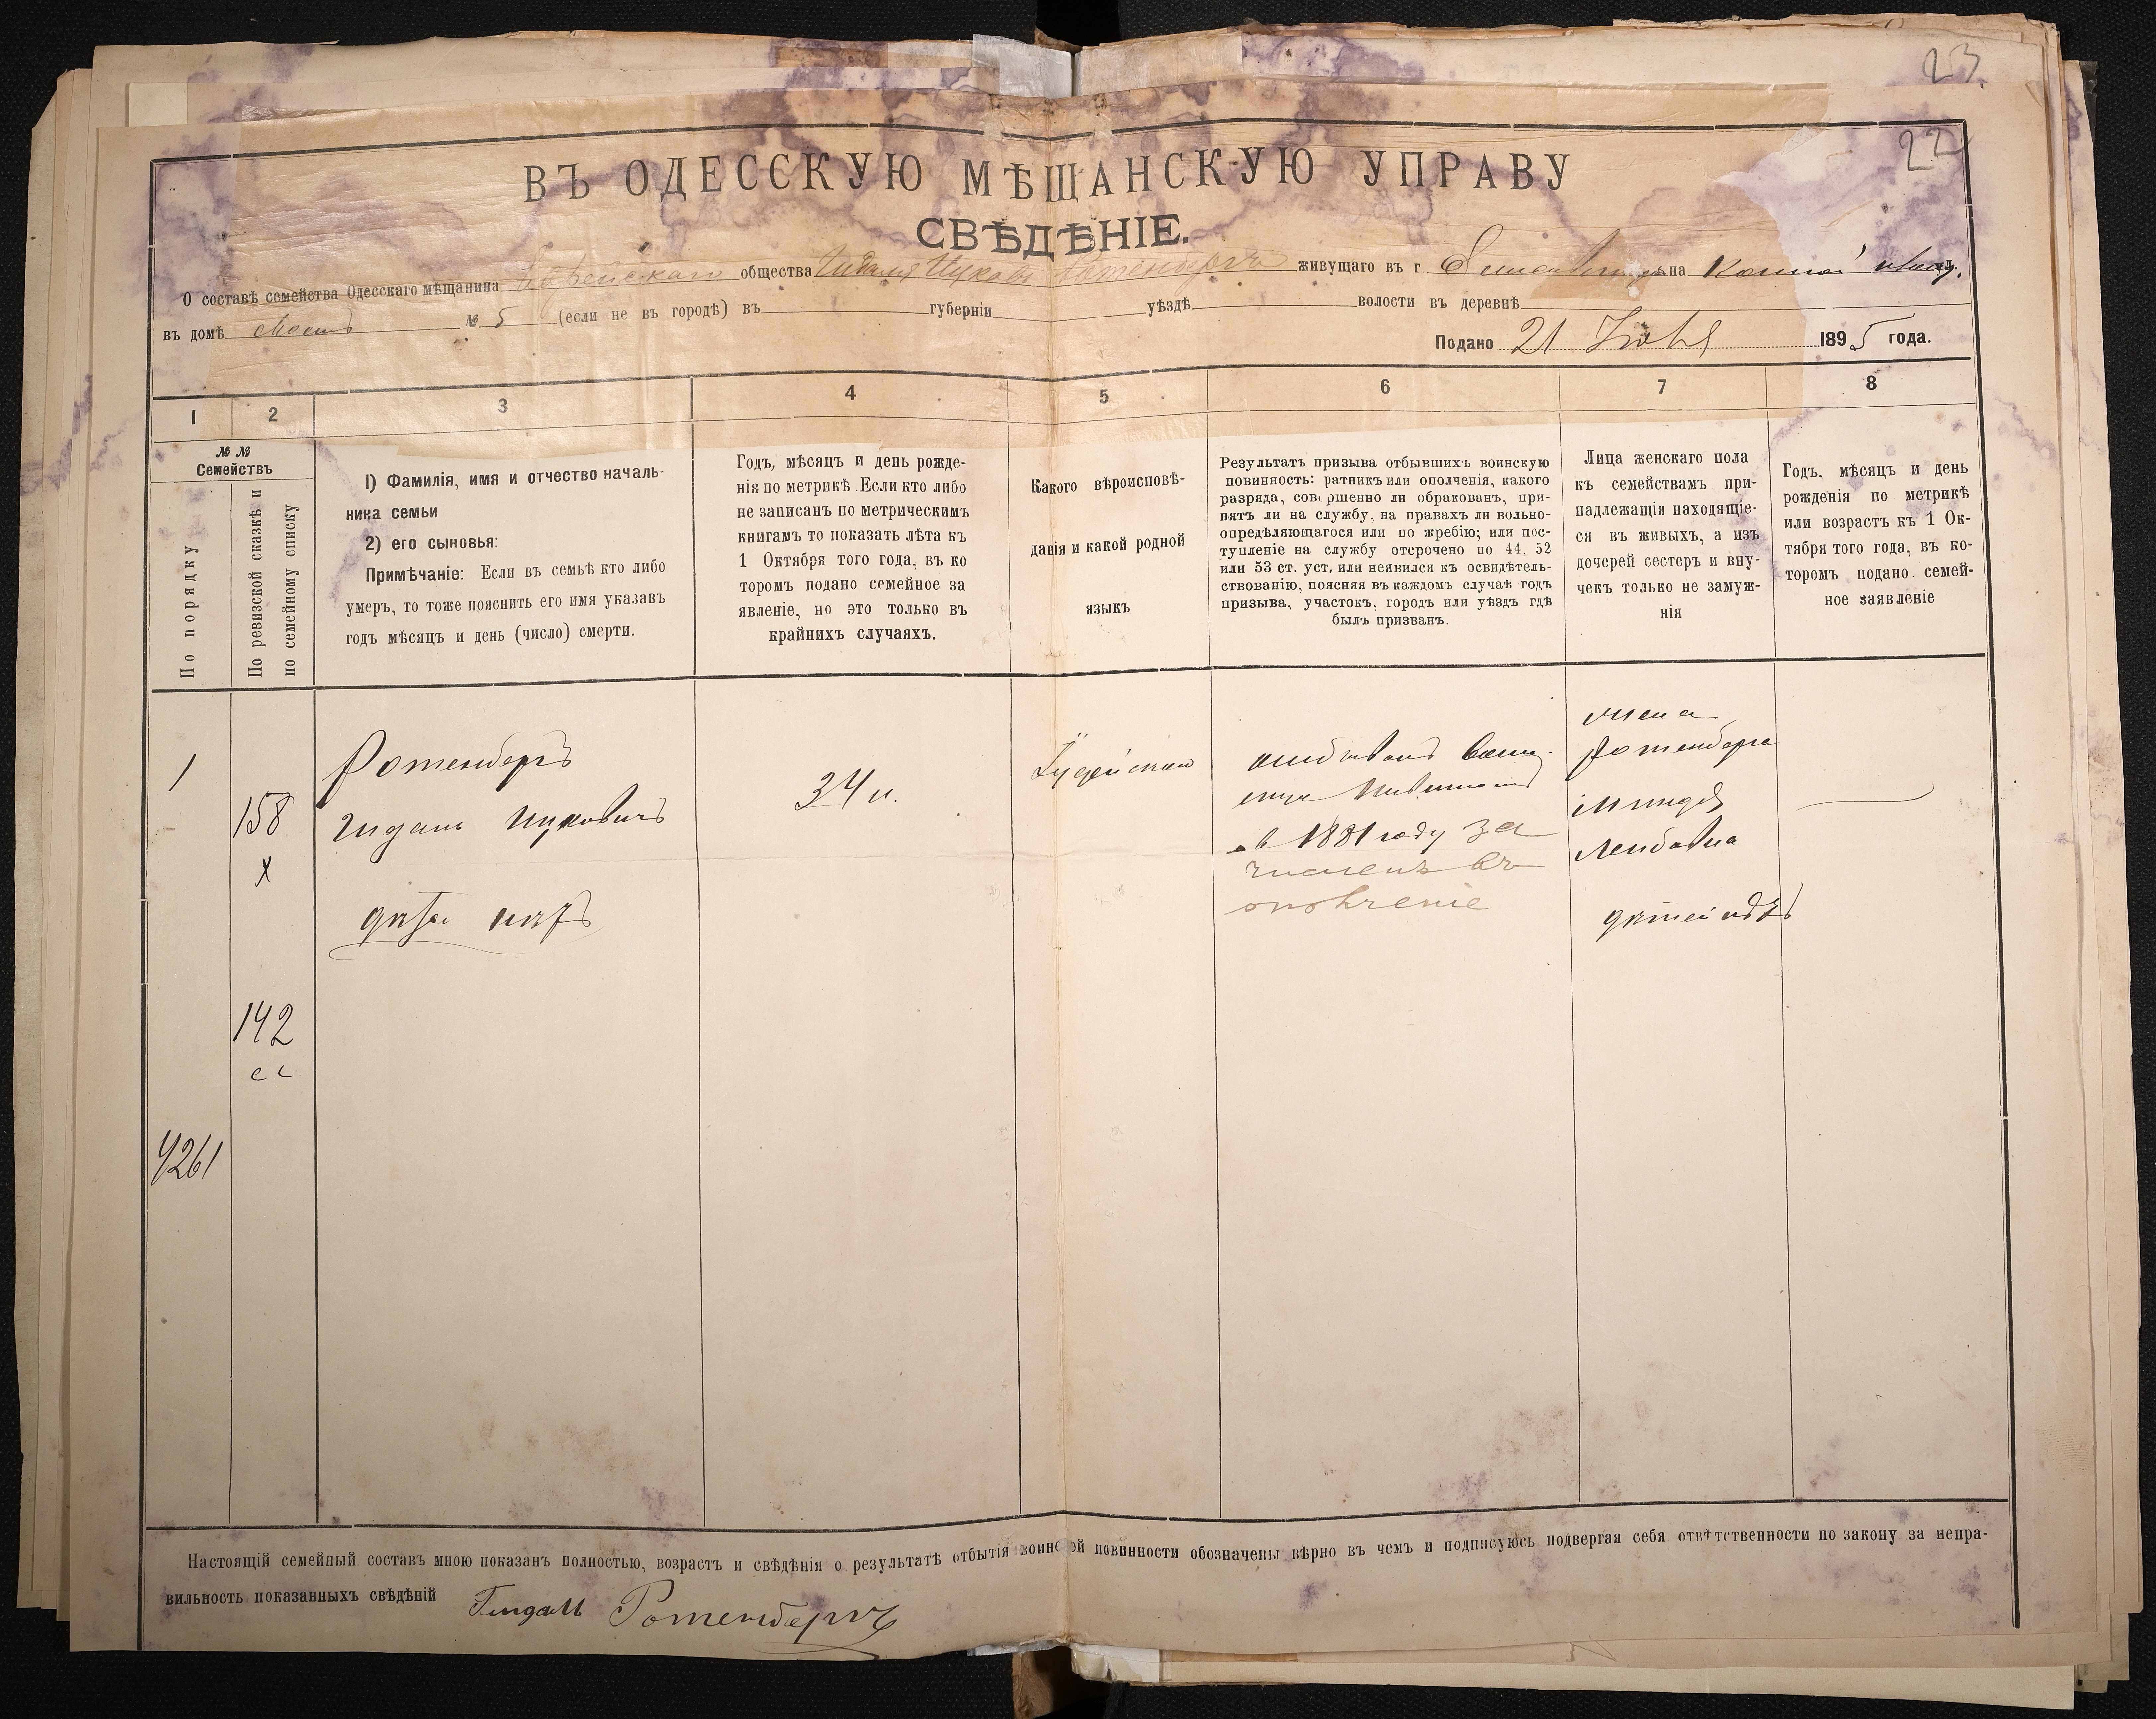 23
22
ВЪ ОДЕССКУЮ МѢЩАНСКУЮ УПРАВУ
СВѢДѢНІЕ.
О составѣ семейства Одесскаго мѣщанина Еврейскаго общества Ицкова Ротенберга живущаго въ г. на Конной
въ домѣ № 5 (если не въ городѣ) въ губерніи уѣздѣ волости въ деревнѣ
Подано 21 1895 года.
1 2 3 4 5 6 7 8
№ №
Семействъ
По порядку
По ревизской сказкѣ и
по семейному списку
1) Фамилія, имя и отчество началь-
ника семьи
2) его сыновья:
Примѣчаніе: Если въ семьѣ кто либо
умеръ, то тоже пояснить его имя указавъ
годъ мѣсяцъ и день (число) смерти.
Годъ, мѣсяцъ и день рожде-
нія по метрикѣ. Если кто либо
не записанъ по метрическимъ
книгамъ то показать лѣта къ
1 Октября того года, въ ко
торомъ подано семейное за
явленіе, но это только въ
крайнихъ случаяхъ.
Какого вѣроисповѣ-
данія и какой родной
языкъ
Результатъ призыва отбывшихъ воинскую
повинность: ратникъ или ополченія, какого
разряда, совершенно ли обракованъ, при-
нятъ ли на службу, на правахъ ли вольно-
опредѣляющагося или по жребію; или пос-
тупленіе на службу отсрочено по 44, 52
или 53 ст. уст, или неявился къ освидѣтель-
ствованію, поясняя въ каждомъ случаѣ годъ
призыва, участокъ, городъ или уѣздъ гдѣ
былъ призванъ.
Лица женскаго пола
къ семействамъ при-
надлежащія находящіе-
ся въ живыхъ, а изъ
дочерей сестеръ и вну-
чекъ только не замуж-
нія
Годъ, мѣсяцъ и день
рожденія по метрикѣ
или возрастъ къ 1 Ок-
тября того года, въ ко-
торомъ подано семей-
ное заявленіе
1
158
х
Ротенбергъ
Гидаль Ицковичъ
34 л.
Іудейскаго
отбывалъ воин-
скую повинность
въ 1881 году за
численъ въ
ополченіе
жена
Ротенберга
Миндля
Лейбовна
дѣтей нѣтъ
142
сс
4261
Настоящій семейный составъ мною показанъ полностью, возрастъ и свѣдѣнія о результатѣ отбытія воинской повинности обозначены вѣрно въ чемъ и подписуюсь подвергая себя отвѣтственности по закону за непра-
вильность показанныхъ свѣдѣній Гидаль Ротенбергъ